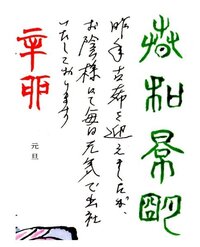 春和景明
昨年古希を迎えましたが、
お陰様にて毎日元気で出社
いたしております
元旦
辛卯